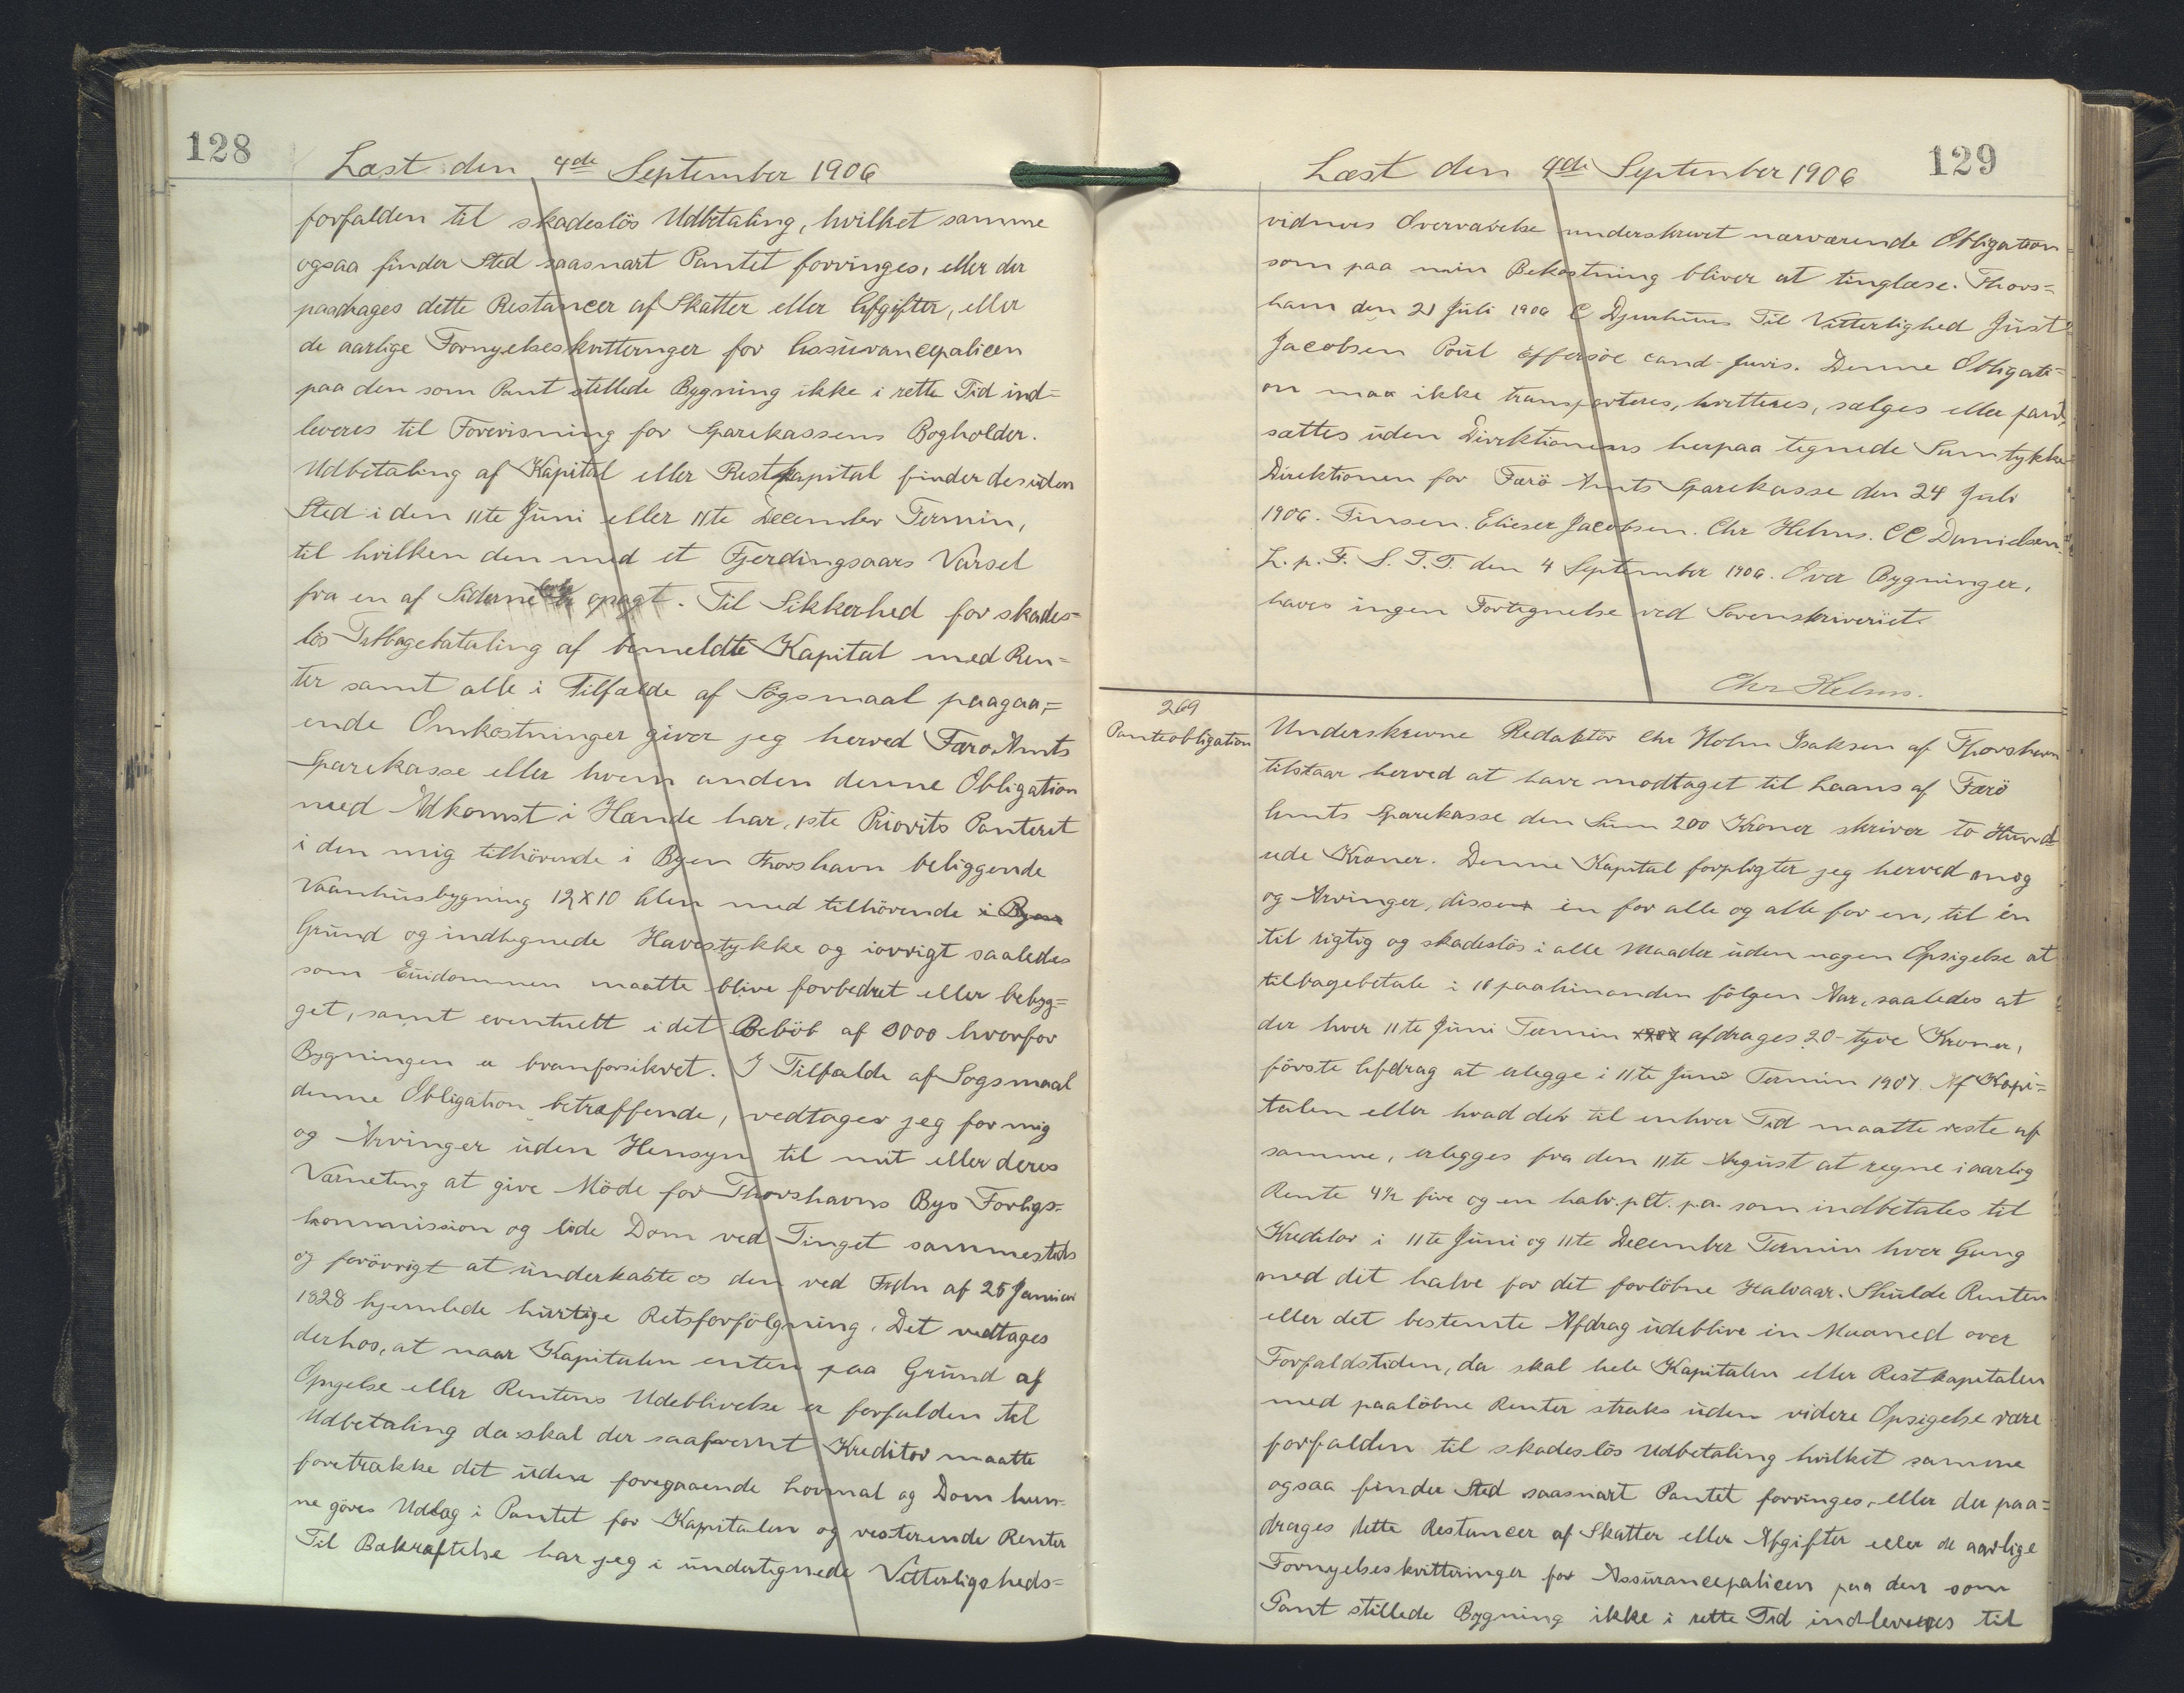 128
Læst den 4de September 1906
forfalden til skadeslös Udbetaling, hvilket samme
ogsaa finder Sted saasnart Pantet forringes, eller der
paadrages dette Restancer af Skatter eller Afgifter, eller
de aarlige Fornyelseskvitteringer for Assurancepalicen
paa den som Pant stillede Bygning ikke i rette Tid ind=
leveres til Forevisning for Sparekassens Bogholder.
Udbetaling af Kapital eller Restkapital finder desuden
Sted i den 11te Juni eller 11te December Termin,
til hvilken den med et Fjerdingsaars Varsel
fra en af Siderne opsagt. Til Sikkerhed for skades=
lös Tilbagebetaling af bemeldte Kapital med Ren=
ter samt alle i Tilfælde af Sögsmaal paagaa=
ende Omkostninger giver jeg herved Færo Amts
Sparekasse eller hvem anden denne Obligation
med Adkomst i Hænde har, 1ste Priorits Panteret
i den mig tilhörende i Byen Thorshavn beliggende
Vaanhusbygning 12x10 Alen med tilhörende i Byen
Grund og indhegnede Havestykke og iovrigt saaledes
som Eiidommen maatte blive forbedret eller bebyg=
get, samt eventuelt i det Beböb af 3000 hvorfor
Bygningen er branforsikret. I Tilfælde af Sogsmaal
denne Obligation betræffende, vedtager jeg for mig
og Arvinger uden Hensyn til mit eller deres
Værneting at give Möde for Thorshavns Bys Forligs=
kommission og lide Dom ved Tinget sammesteds
og forövrigt at underkaste os den ved Frdn af 25 Januar
1828 hjemlede hurtige Retsforfölgning. Det vedtages
derhos, at naar Kapitalen enten paa Grund af
Opsigelse eller Rentens Udeblivelse er forfalden til
Udbetaling da skal der saafremt Kreditor maatte
foretrække det uden foregaaende Lovmal og Dom kun=
ne göres Udlæg i Pantet for Kapitalen og resterende Renter
Til Bekræftelse har jeg i undertegnede Vitterligsheds=
129
Læst den 4de September 1906
vidners Overværelse underskrevet nærværende Obligation
som paa min Bekostning bliver at tinglæse. Thors=
havn den 21 Juli 1906 C Djurhuus Til Vitterlighed Just
Jacobsen Poul Effersöe cand-juris. Denne Obligati=
on maa ikke transporteres, kvitteres, sælges eller pant,
sættes uden Direktionens herpaa tegnede Samtykke
Direktionen for Færö Amts Sparekasse den 24 Juli
1906. Finsen. Elieser Jacobsen. Chr Helms. CC Danielsen.
L. p. F. S. T. T. den 4 September 1906. Over Bygninger,
haves ingen Fortegnelse ved Sorenskriveriet.
Chr Helms.
269
Panteobligation
Underskrevne Redaktör Chr Holm Isaksen af Thorshavn
tilstaar herved at have modtaget til Laans af Færö
Amts Sparekasse den Sum 200 Kroner skriver to Hund=
rede Kroner. Denne Kapital forpligter jeg herved mig
og Arvinger, disse en for alle og alle for en, til én
til rigtig og skadeslös i alle Maader uden nogen Opsigelse at
tilbagebetale i 10 paahinanden fölgen Aar, saaledes at
der hver 11te Juni Termin 1907 afdrages 20- tyve Kroner,
förste Afdrag at erlegge i 11te Juni Termin 1907. Af Kapi=
talen eller hvad der til enhver Tid maatte reste af
samme, erlegges fra den 11te August at regne i aarlig
Rente 4½ fire og en halv. pCt. p.a. som indbetales til
Kreditor i 11te Juni og 11te December Termin hver Gang
med det halve for det forlöbne Halvaar. Skulde Renten
eller det bestemte Afdrag udeblive in Maaned over
Forfaldstiden, da skal hele Kapitalen eller Restkapitalen
med paalöbne Renter straks uden videre Opsigelse være
forfalden til skadeslös Udbetaling hvilket samme
ogsaa finder Sted saasnart Pantet forringes, eller der paa=
drages dette Restancer af Skatter eller Afgifter eller de aarlige
Fornyelseskvitteringer for Assurancepalicen paa den som
Pant stillede Bygning ikke i rette Tid indleveres til